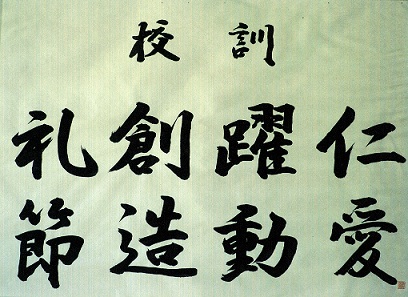 校訓
仁愛
躍動
創造
礼節